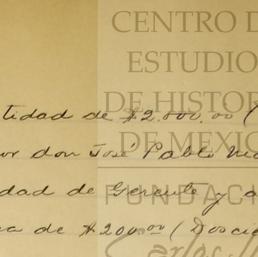 CENTRO D
ESTUDIO
tidad de $2.000.00 (
DE HISTOR
or don José Pablo
DE MEXIC
dad de Gerente y a
FUNDACI
a de $200.00 (Doscie
Carlos